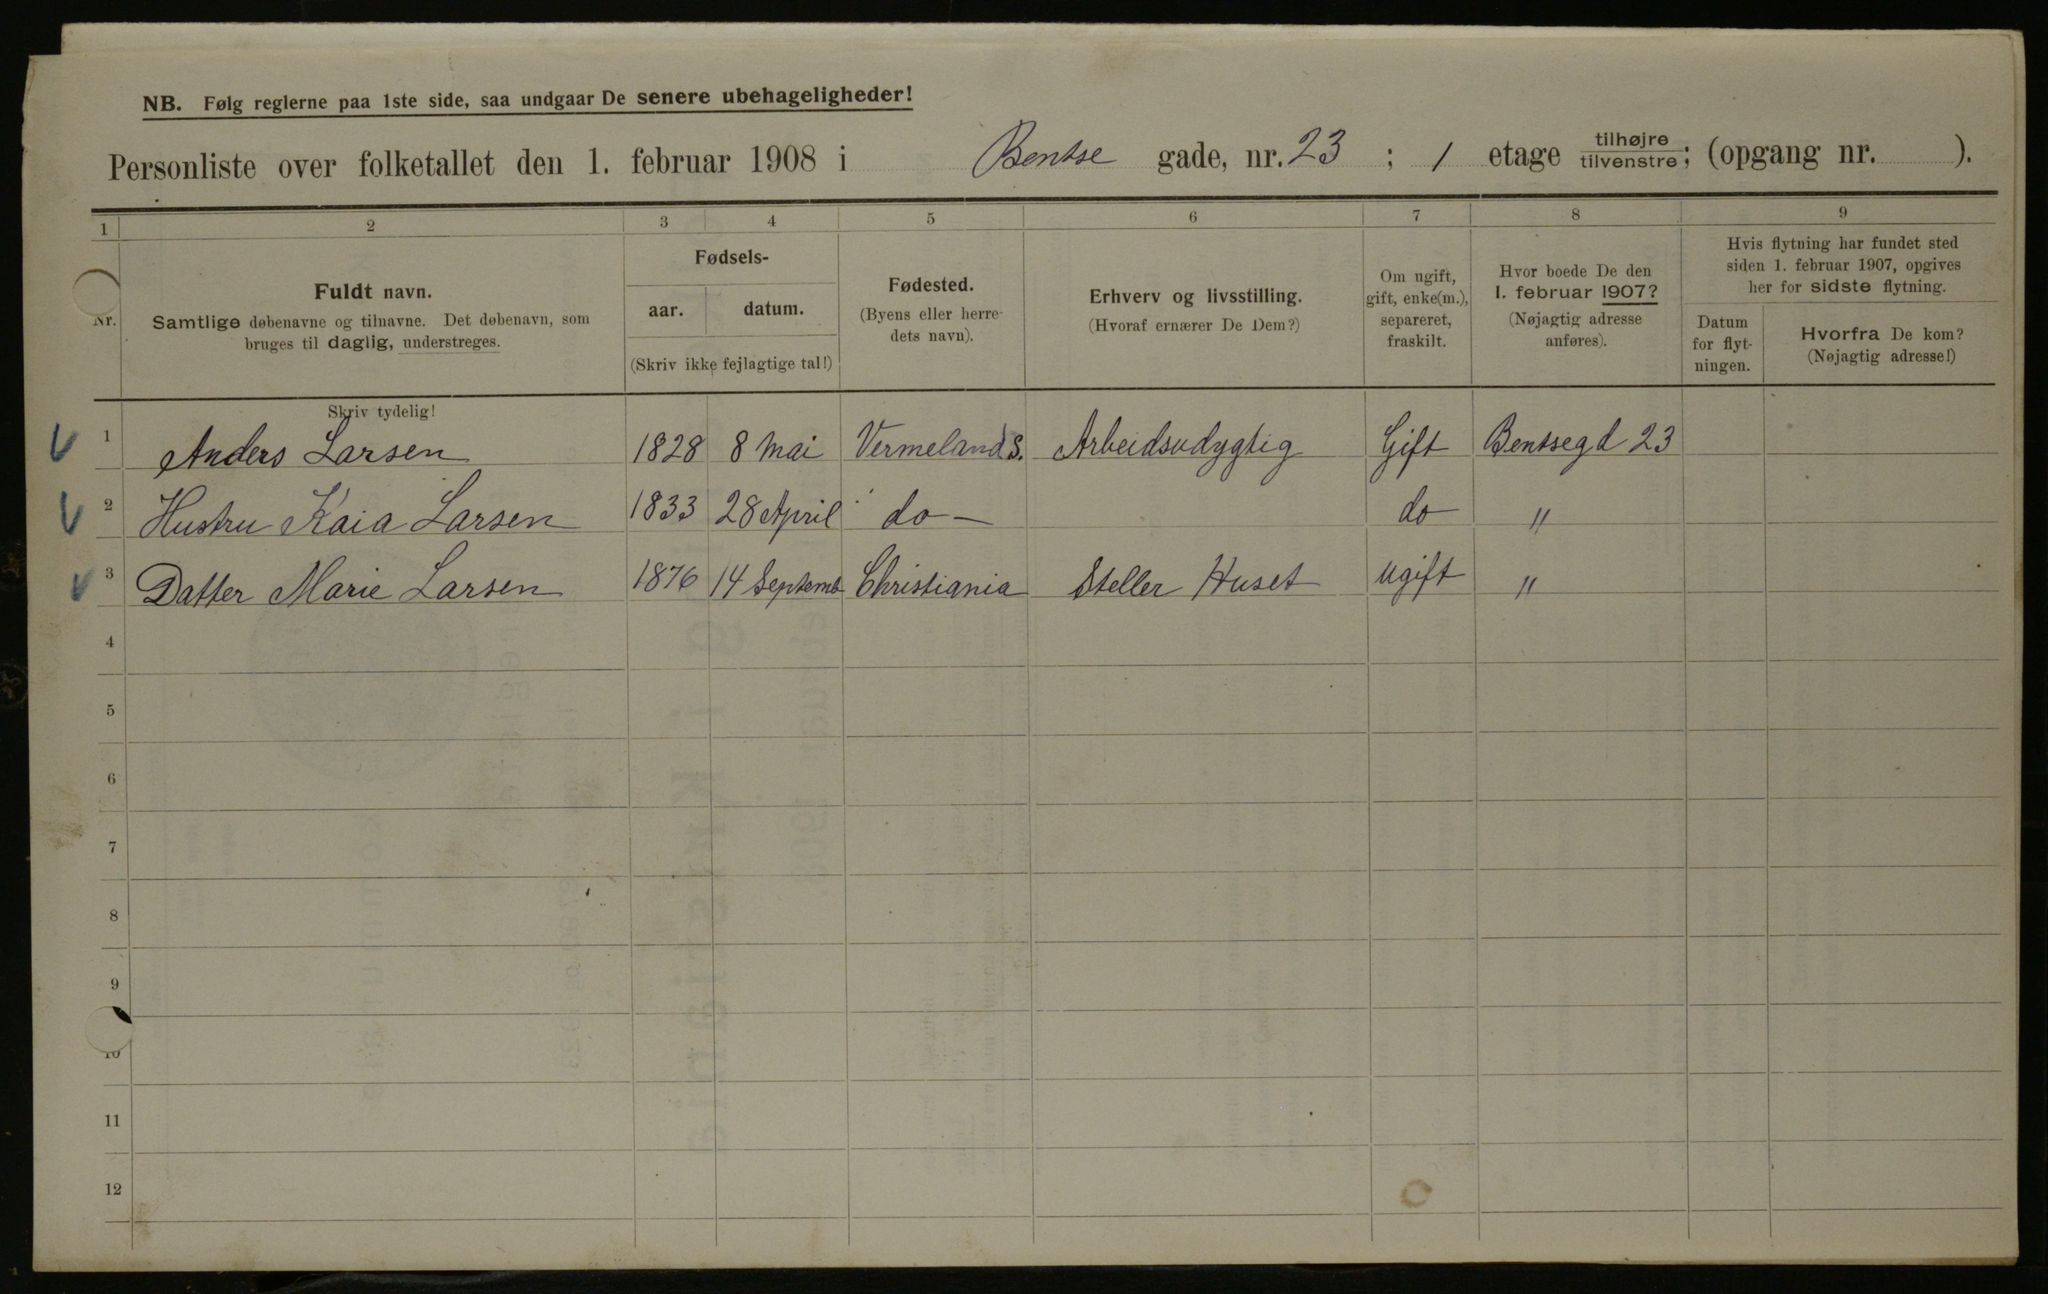 NB. Følg reglerne paa 1ste side, saa undgaar De senere ubehageligheder!
Personliste over folketallet den 1. februar 1908 i Bentse gade, nr. 23 ; 1 etage tilhøjre tilvenstre; (opgang nr. ).
1 2 3 4 5 6 7 8 9
Nr.
Fuldt navn.
Samtlige døbenavne og tilnavne. Det døbenavn, som
bruges til daglig, understreges.
Fødsels-
aar. datum.
(Skriv ikke fejlagtige tal!)
Fødested.
(Byens eller herre-
dets navn).
Erhverv og livsstilling.
(Hvoraf ernærer De Dem?)
Om ugift,
gift, enke(m.),
separeret,
fraskilt.
Hvor boede De den
1. februar 1907?
(Nøjagtig adresse
anføres).
Hvis flytning har fundet sted
siden 1. februar 1907, opgives
her for sidste flytning.
Datum
for flyt-
ningen.
Hvorfra De kom?
(Nøjagtig adresse!)
Skriv tydelig!
1 Anders Larsen 1828 8 Mai Vermeland S. Arbeidsudygtig Gift Bentsegd 23
2 Hustru Kaia Larsen 1833 28 April do — do "
3 Datter Marie Larsen 1876 14 Septemb Christiania Steller Huset Ugift "
4
5
6
7
8
9
10
11
12